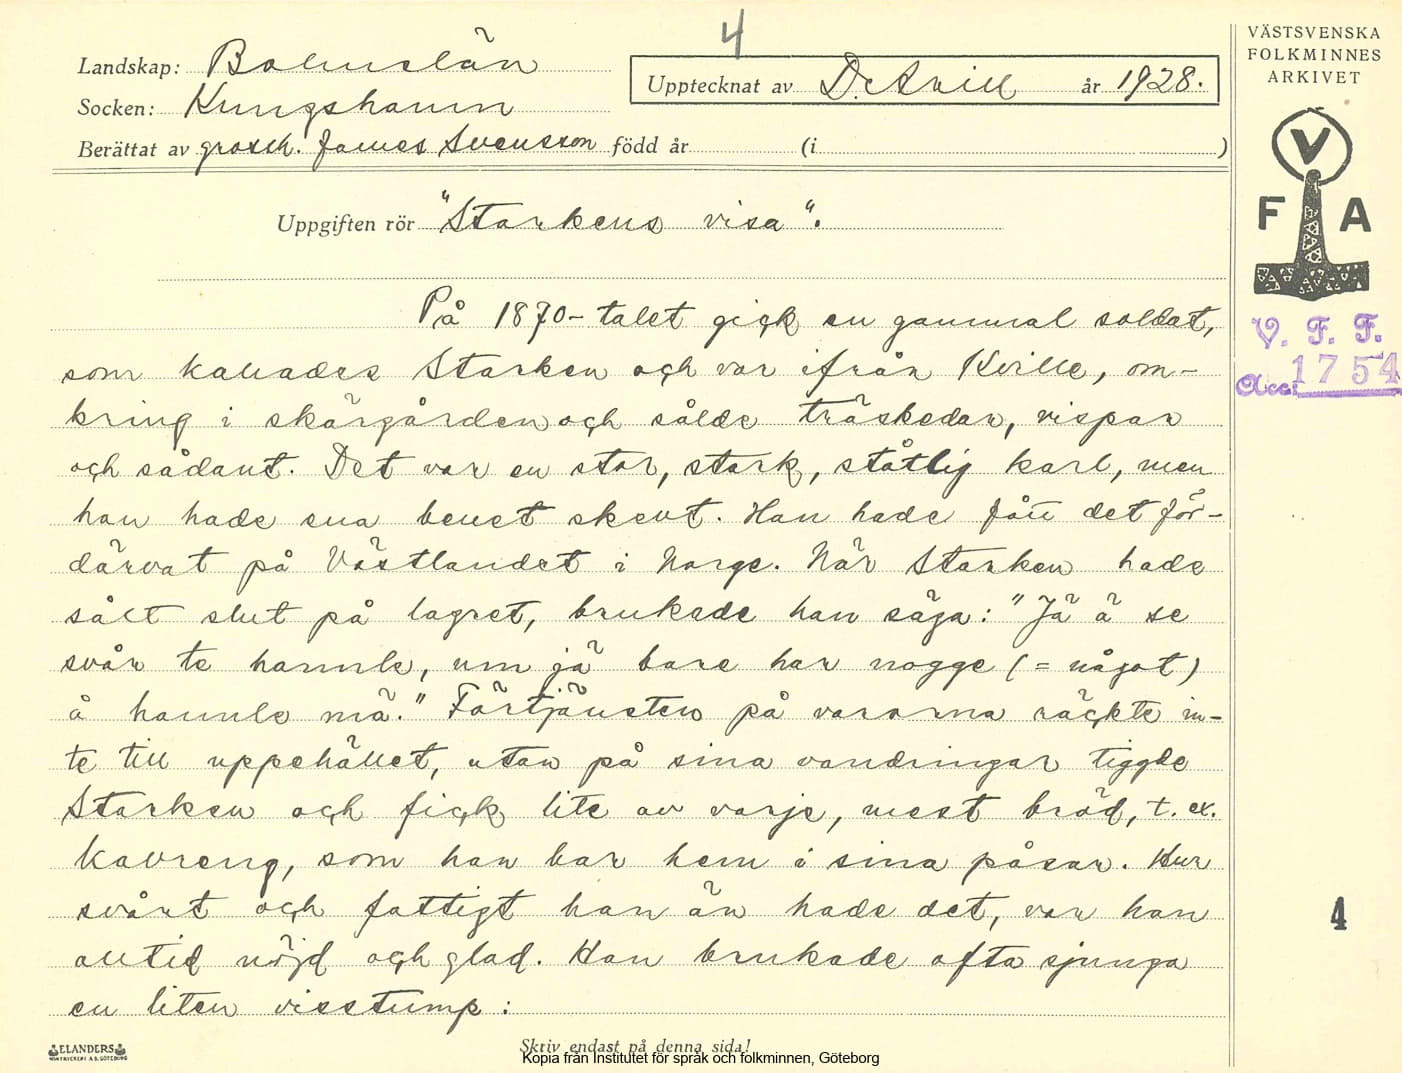 4
Landskap: Bohuslän
Upptecknat av D. Arill år 1928.
Socken: Kungshamn
Berättat av grossh. James Svensson född år (i )
Uppgiften rör "Starkens visa".
På 1870-talet gick en gammal soldat,
som kallades Starken och var ifrån Kville, om-
kring i skärgården och sålde träskedar, vispar
och sådant. Det var en stor, stark, ståtlig karl, men
han hade ena benet skevt. Han hade fått det för-
därvat på Västlandet i Norge. När Starken hade
sålt slut på lagret, brukade han säga: "Jä ä se
svår te hannle, um jä bare har nogge (= något)
å hannle mä." Förtjänsten på varorna räckte in-
te till uppehället, utan på sina vandringar tiggde
Starken och fick lite av varje, mest bröd, t. ex.
kavreng, som han bar hem i sina påsar. Hur
svårt och fattigt han än hade det, var han
alltid nöjd och glad. Han brukade ofta sjunga
en liten visstump:
VÄSTSVENSKA
FOLKMINNES
ARKIVET
V
F A
V. F. F.
Acc: 1754
4
ELANDERS
Skriv endast på denna sida!
Kopia från Institutet för språk och folkminnen, Göteborg